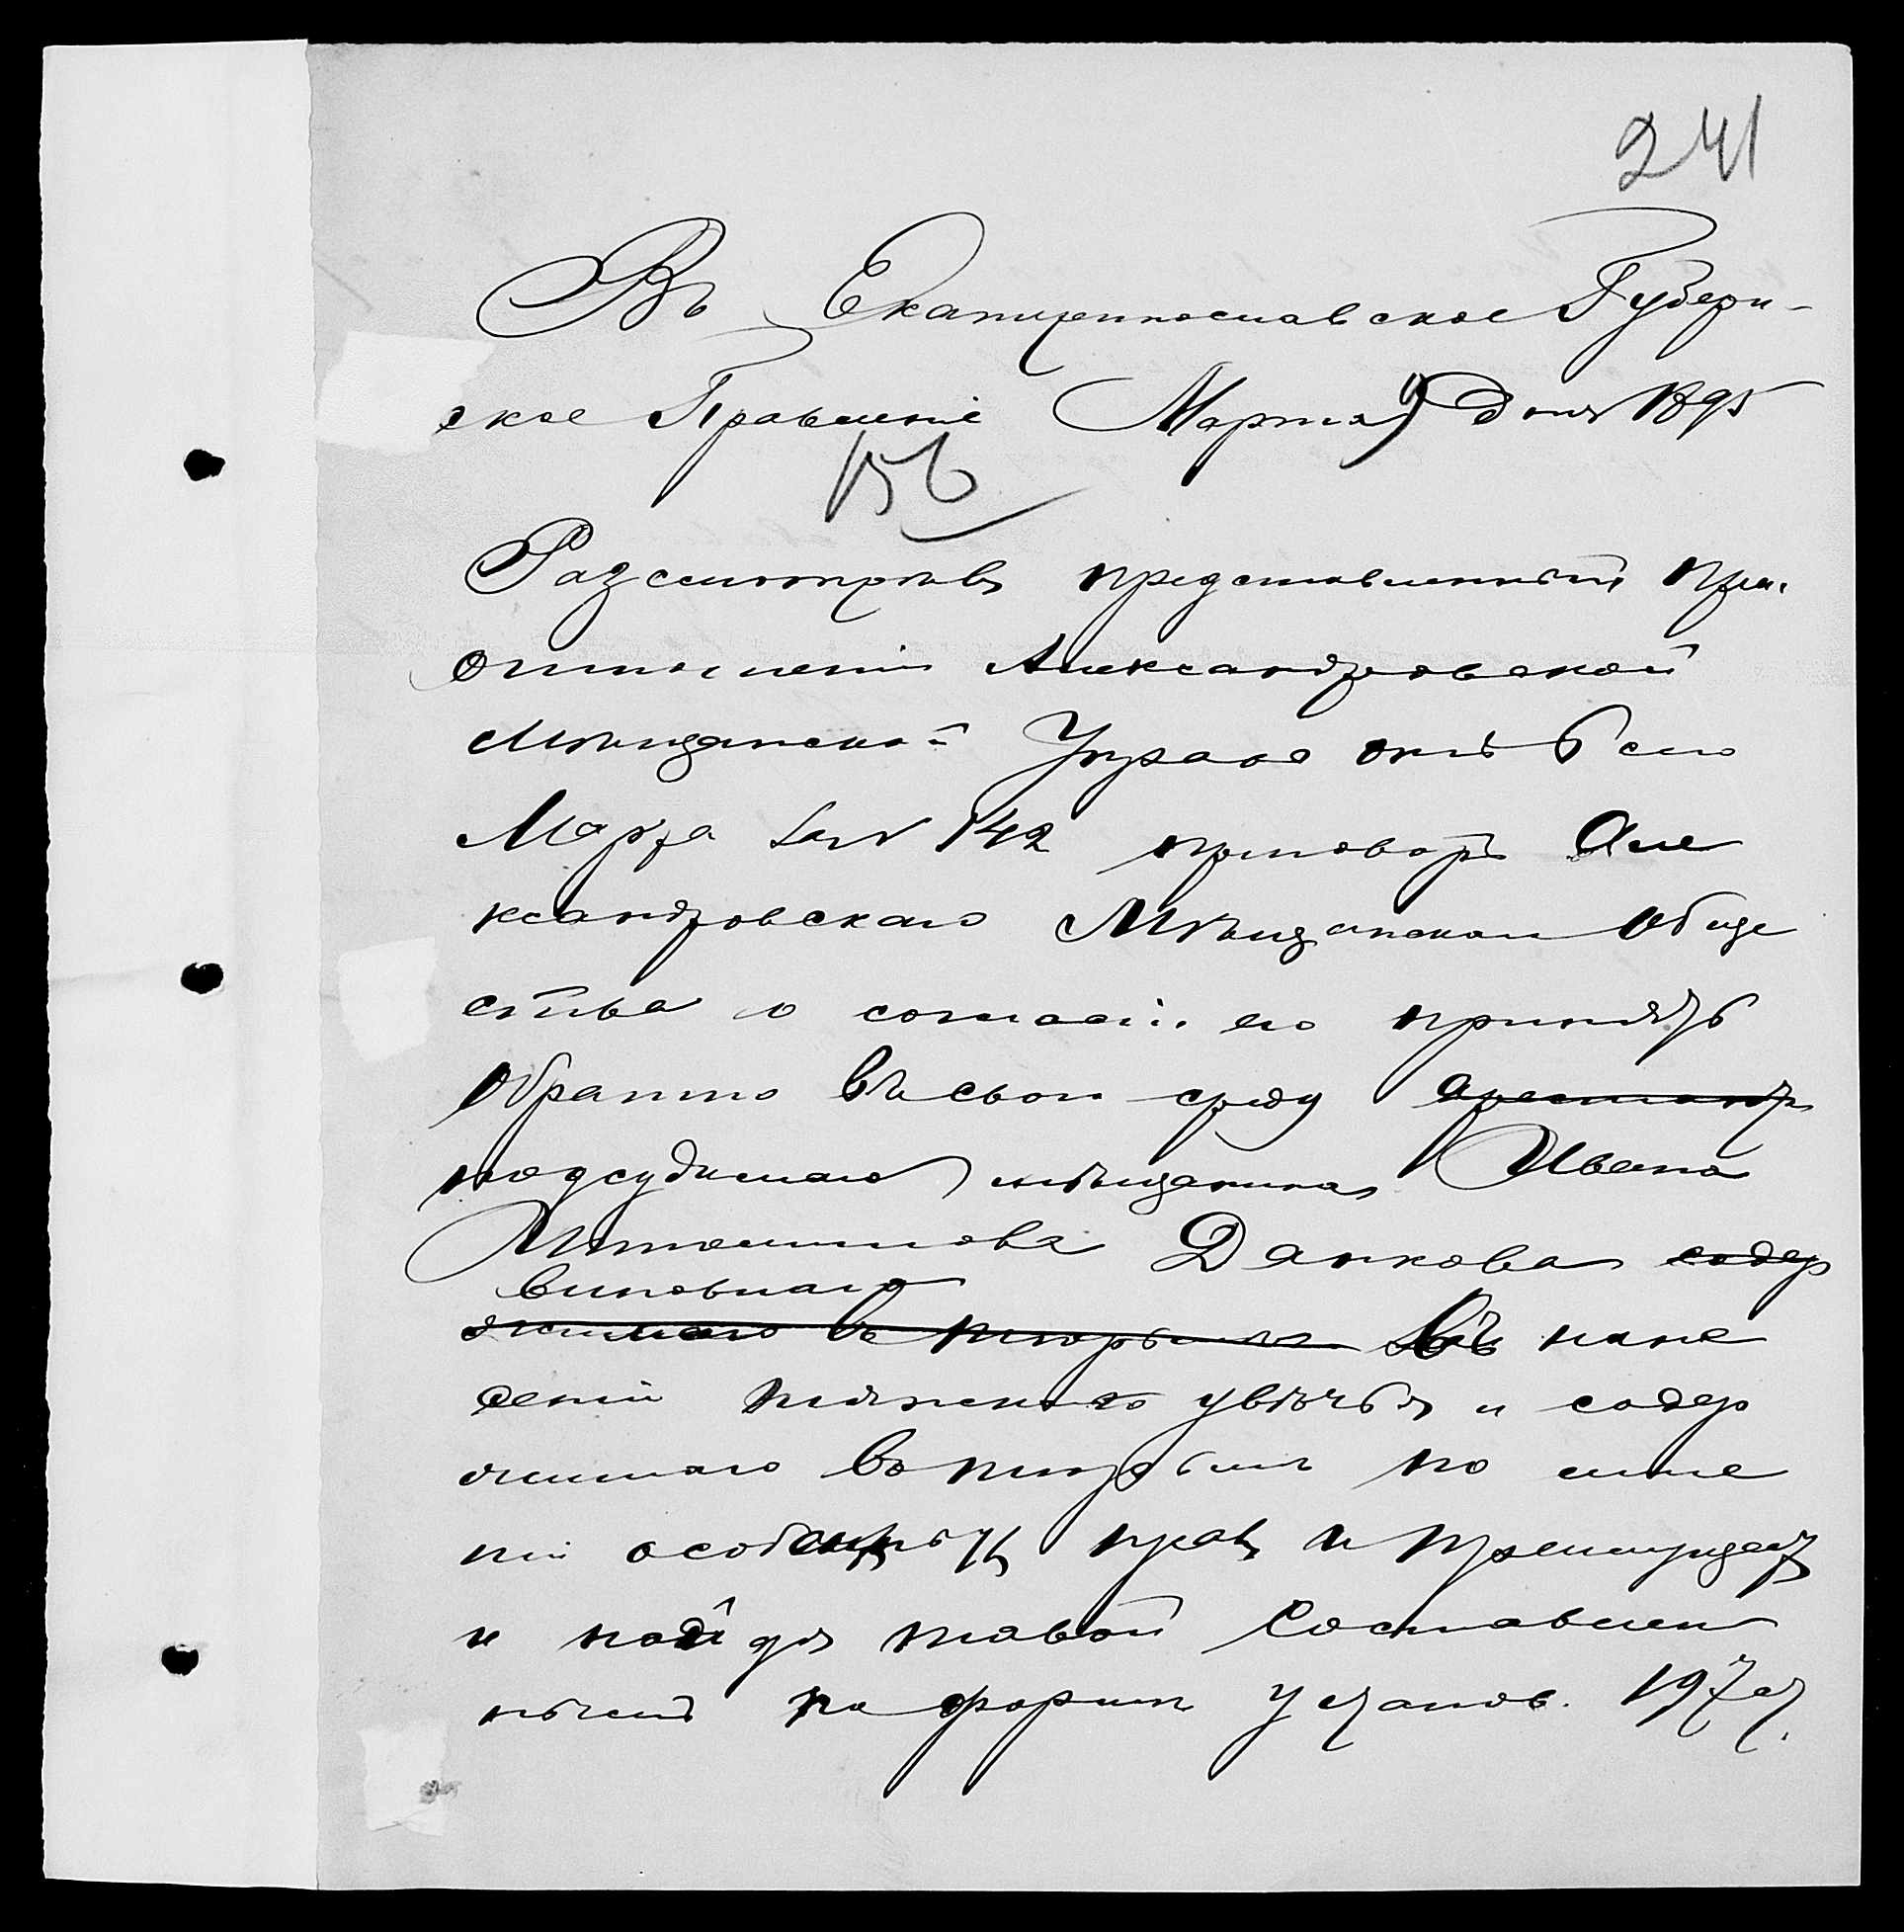 241
Въ Екатеринославское Губерн-
ское Правленіе Марта 9 дня 1895
156
Разсмотрѣвъ представленный при
отношеніи Александровской
Мѣщанской Управы отъ 6 сего
Марта за № 142 приговоръ Але
ксандровскаго Мѣщанскаго Обще
ства о согласіи его принять
обратно въ свою среду арестант
подсудимаго мѣщанина Ивана
Данкова содер
виновнаго
жимаго въ тюрьмѣ въ нане
сеніи тяжкаго увѣчья и содер
жимаго въ тюрьмѣ по лише
ніи особенныхъ правъ и преимуществ
и найдя таковой составлен
нымъ по формѣ установ. 197 ст.